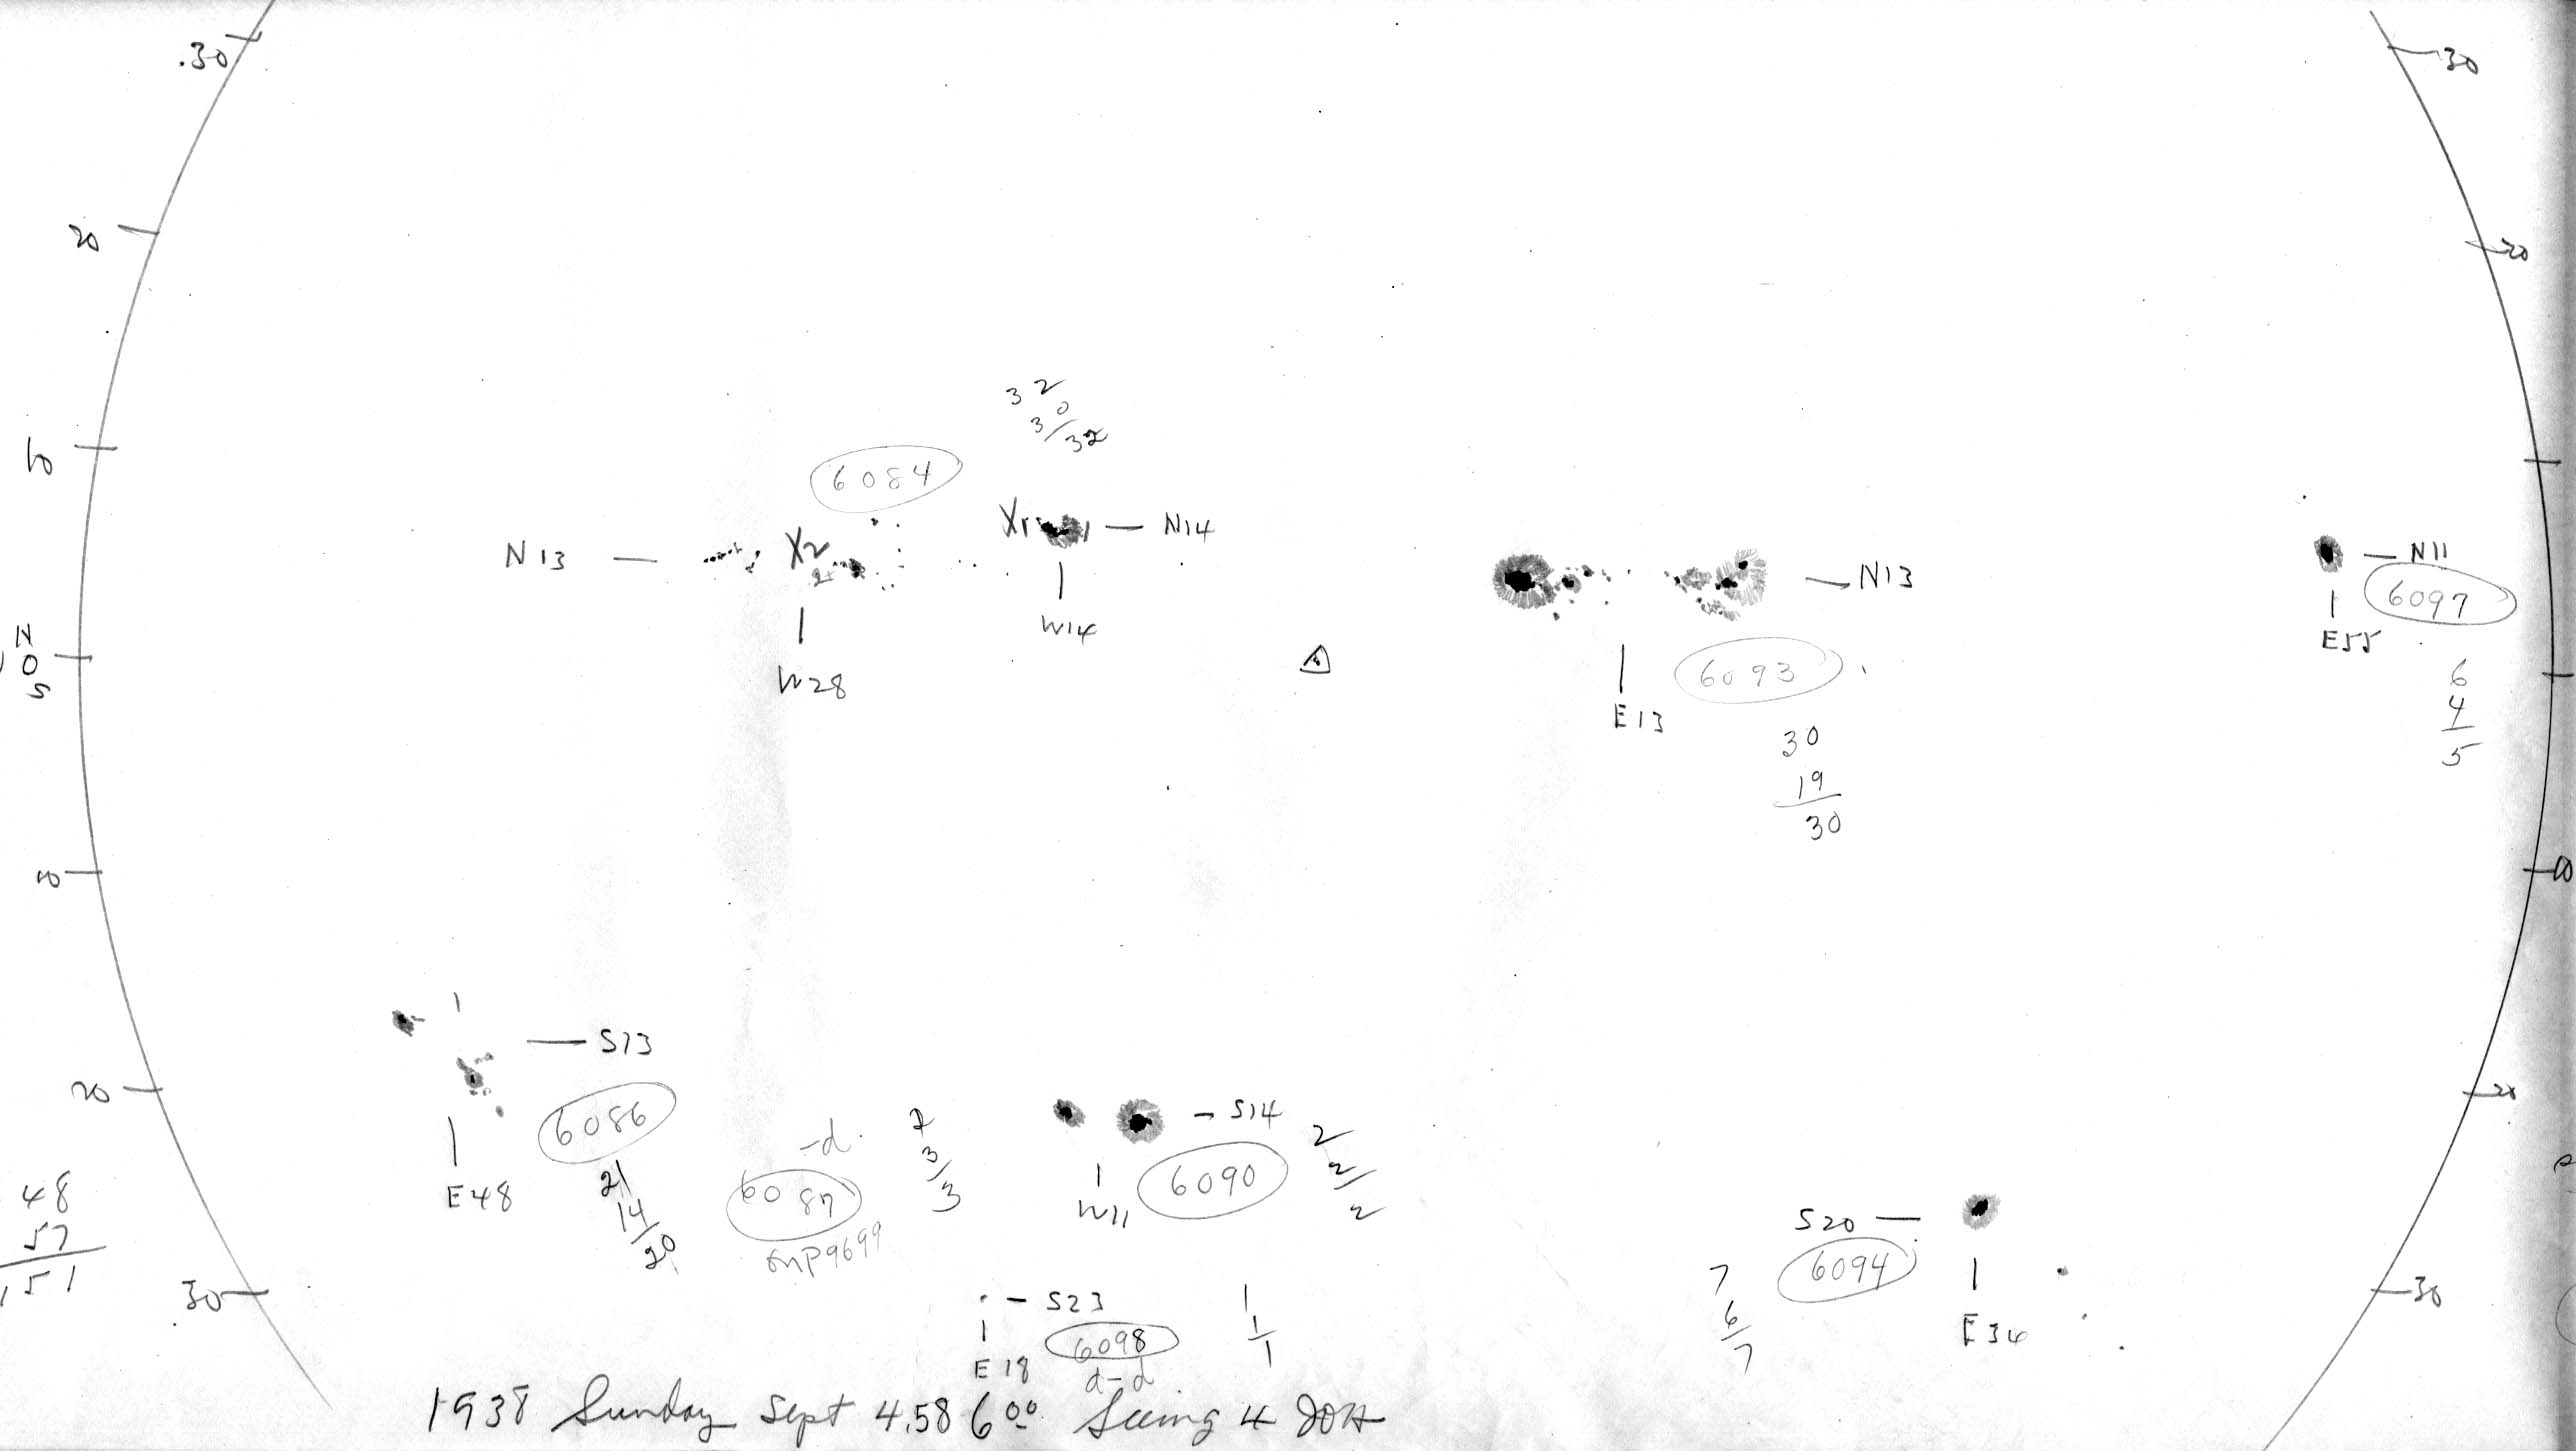 30
30
20
20
10
3 2
0
3/32
6084
X2
Xr
N14
N13
W14
W28
N13
E13
6093
30
19
30
N11
6097
E55
6
4
5
N
0
S
10
10
S13
6086
E48
21
14
20
20
20
-d
6087
2
3
3
S14
6090
W11
2
2
2
S20
6094
E34
7
6
7
48
57
151
30
30
S23
6098
E18
d-d
1
1
1
1938 Sunday Sept 4.58 6 00 Seeing 4 JOH